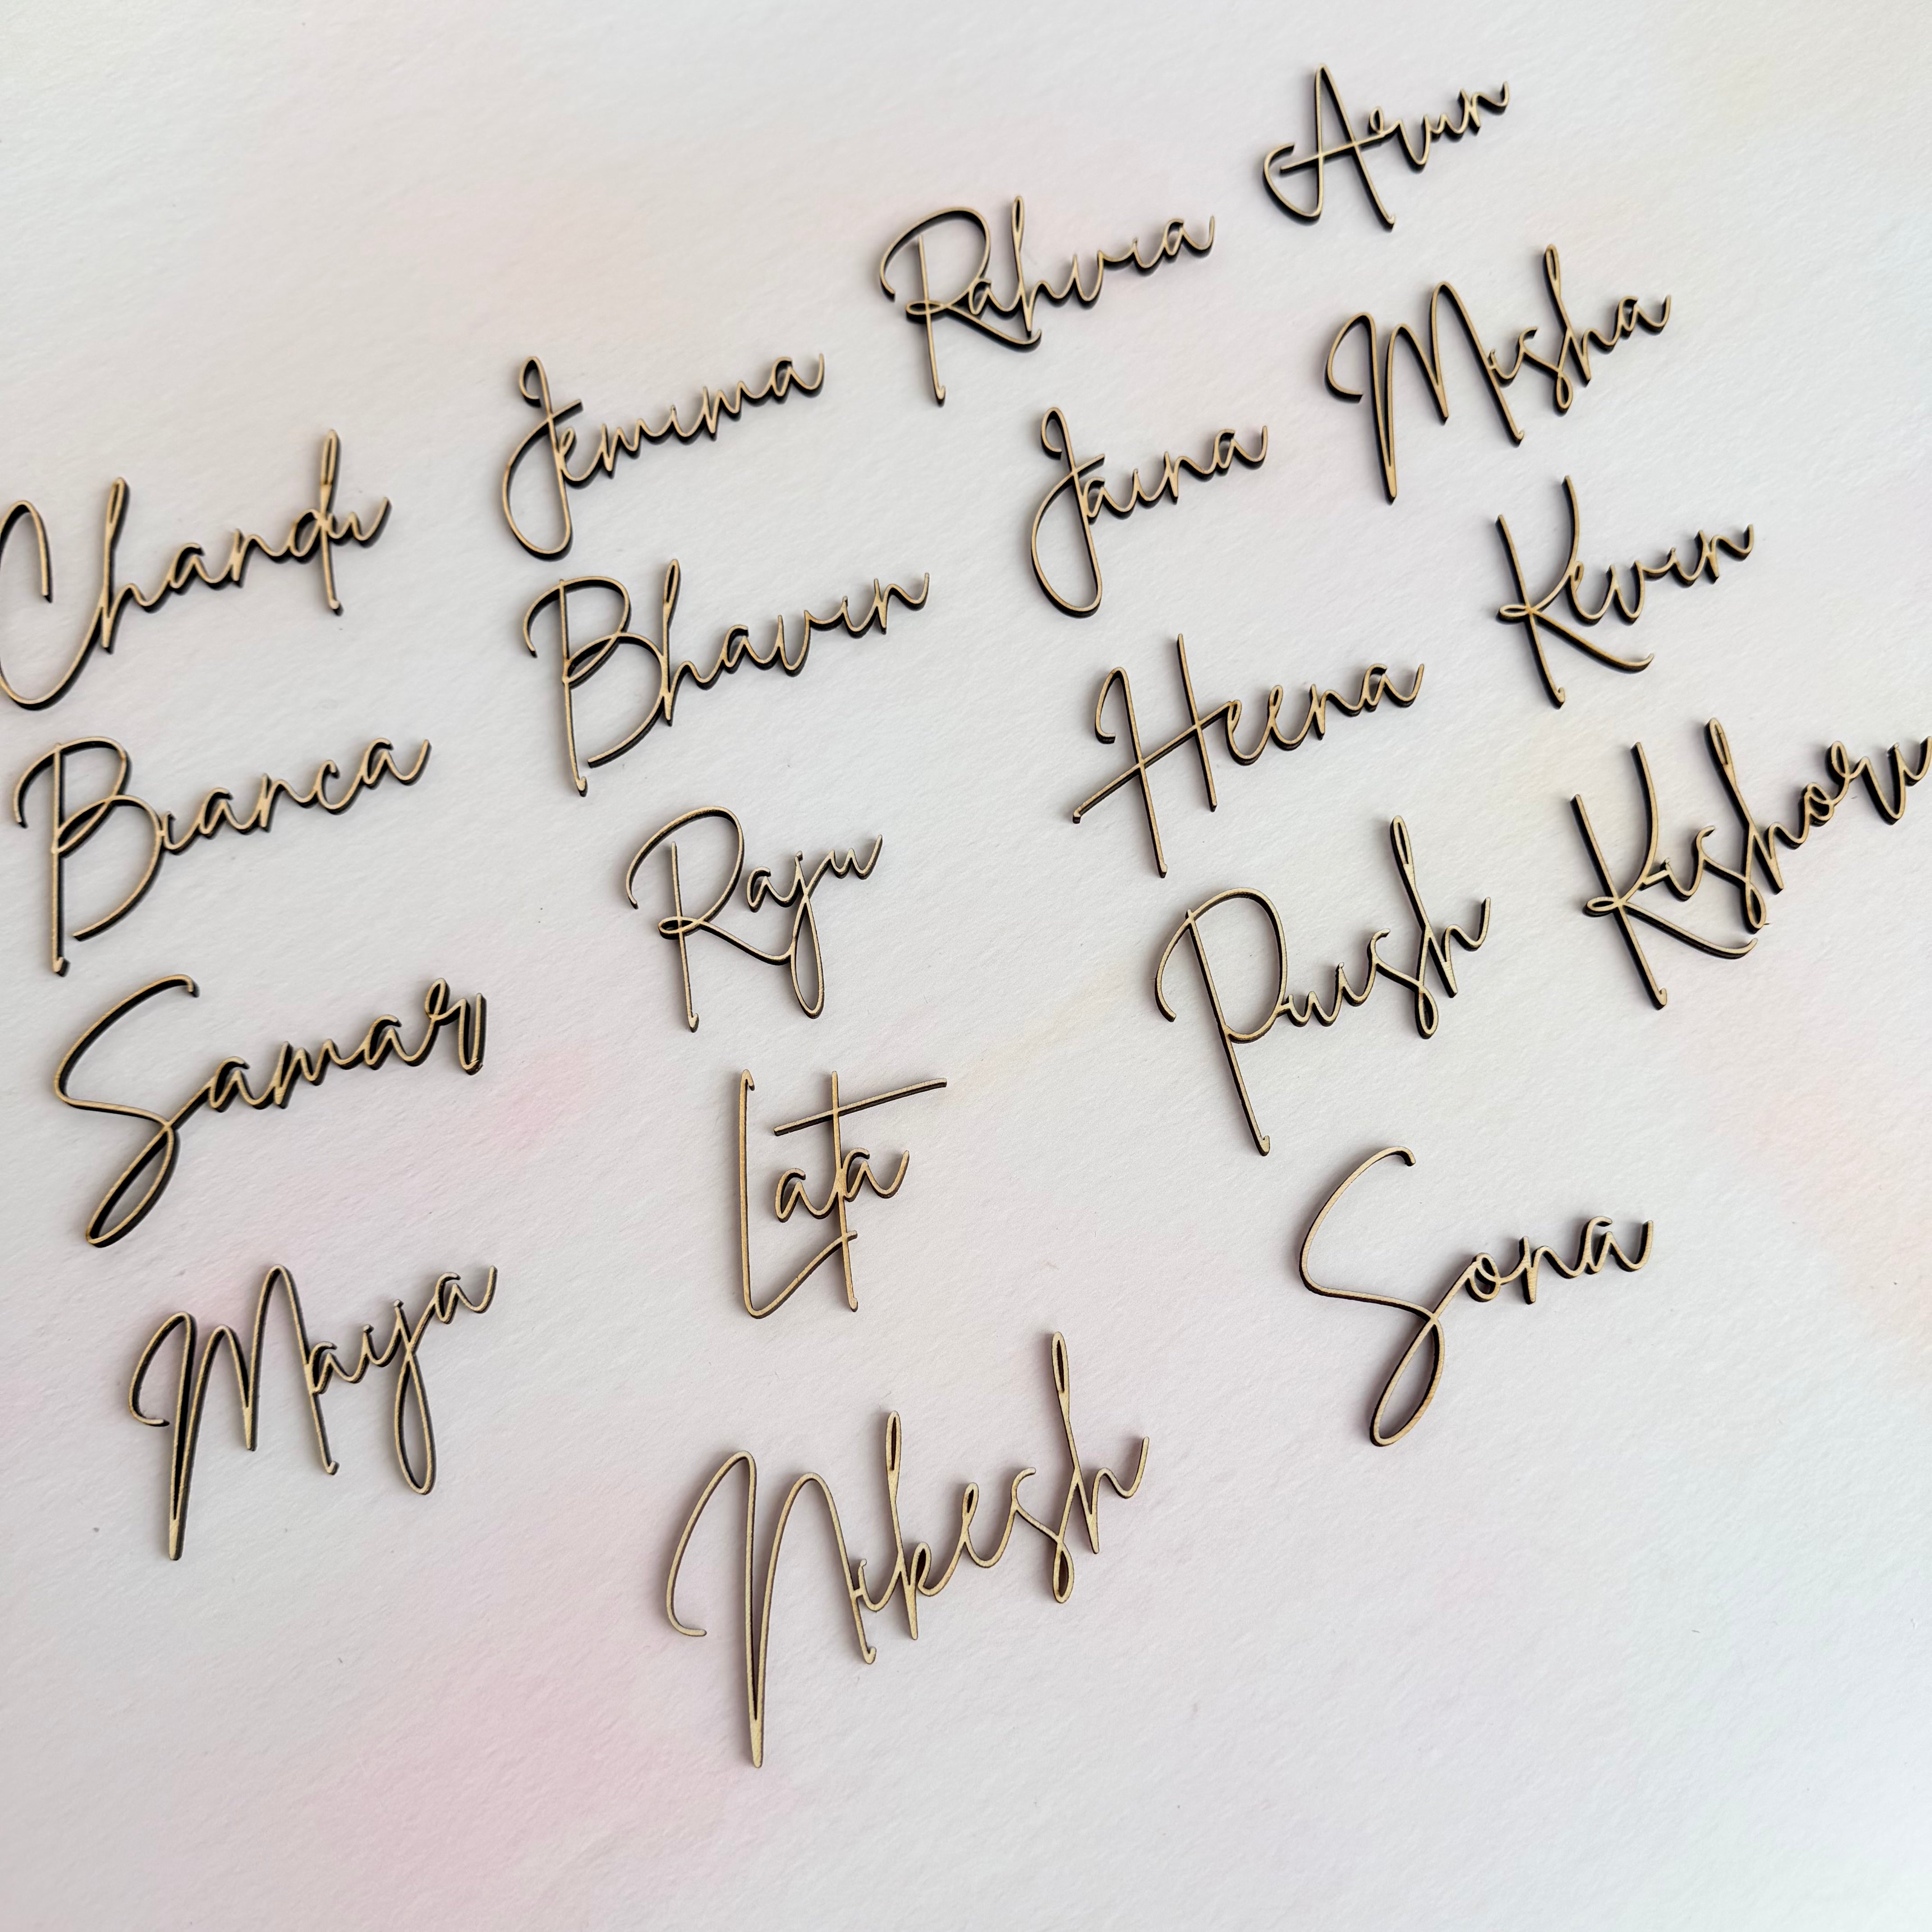 Arun
Rahvia
Misha
Jemima
Jaina
Chandu
Kevin
Bhavin
Heena
Bianca
Kishori
Raju
Samar
Lata
Sona
Maija
Nikesh